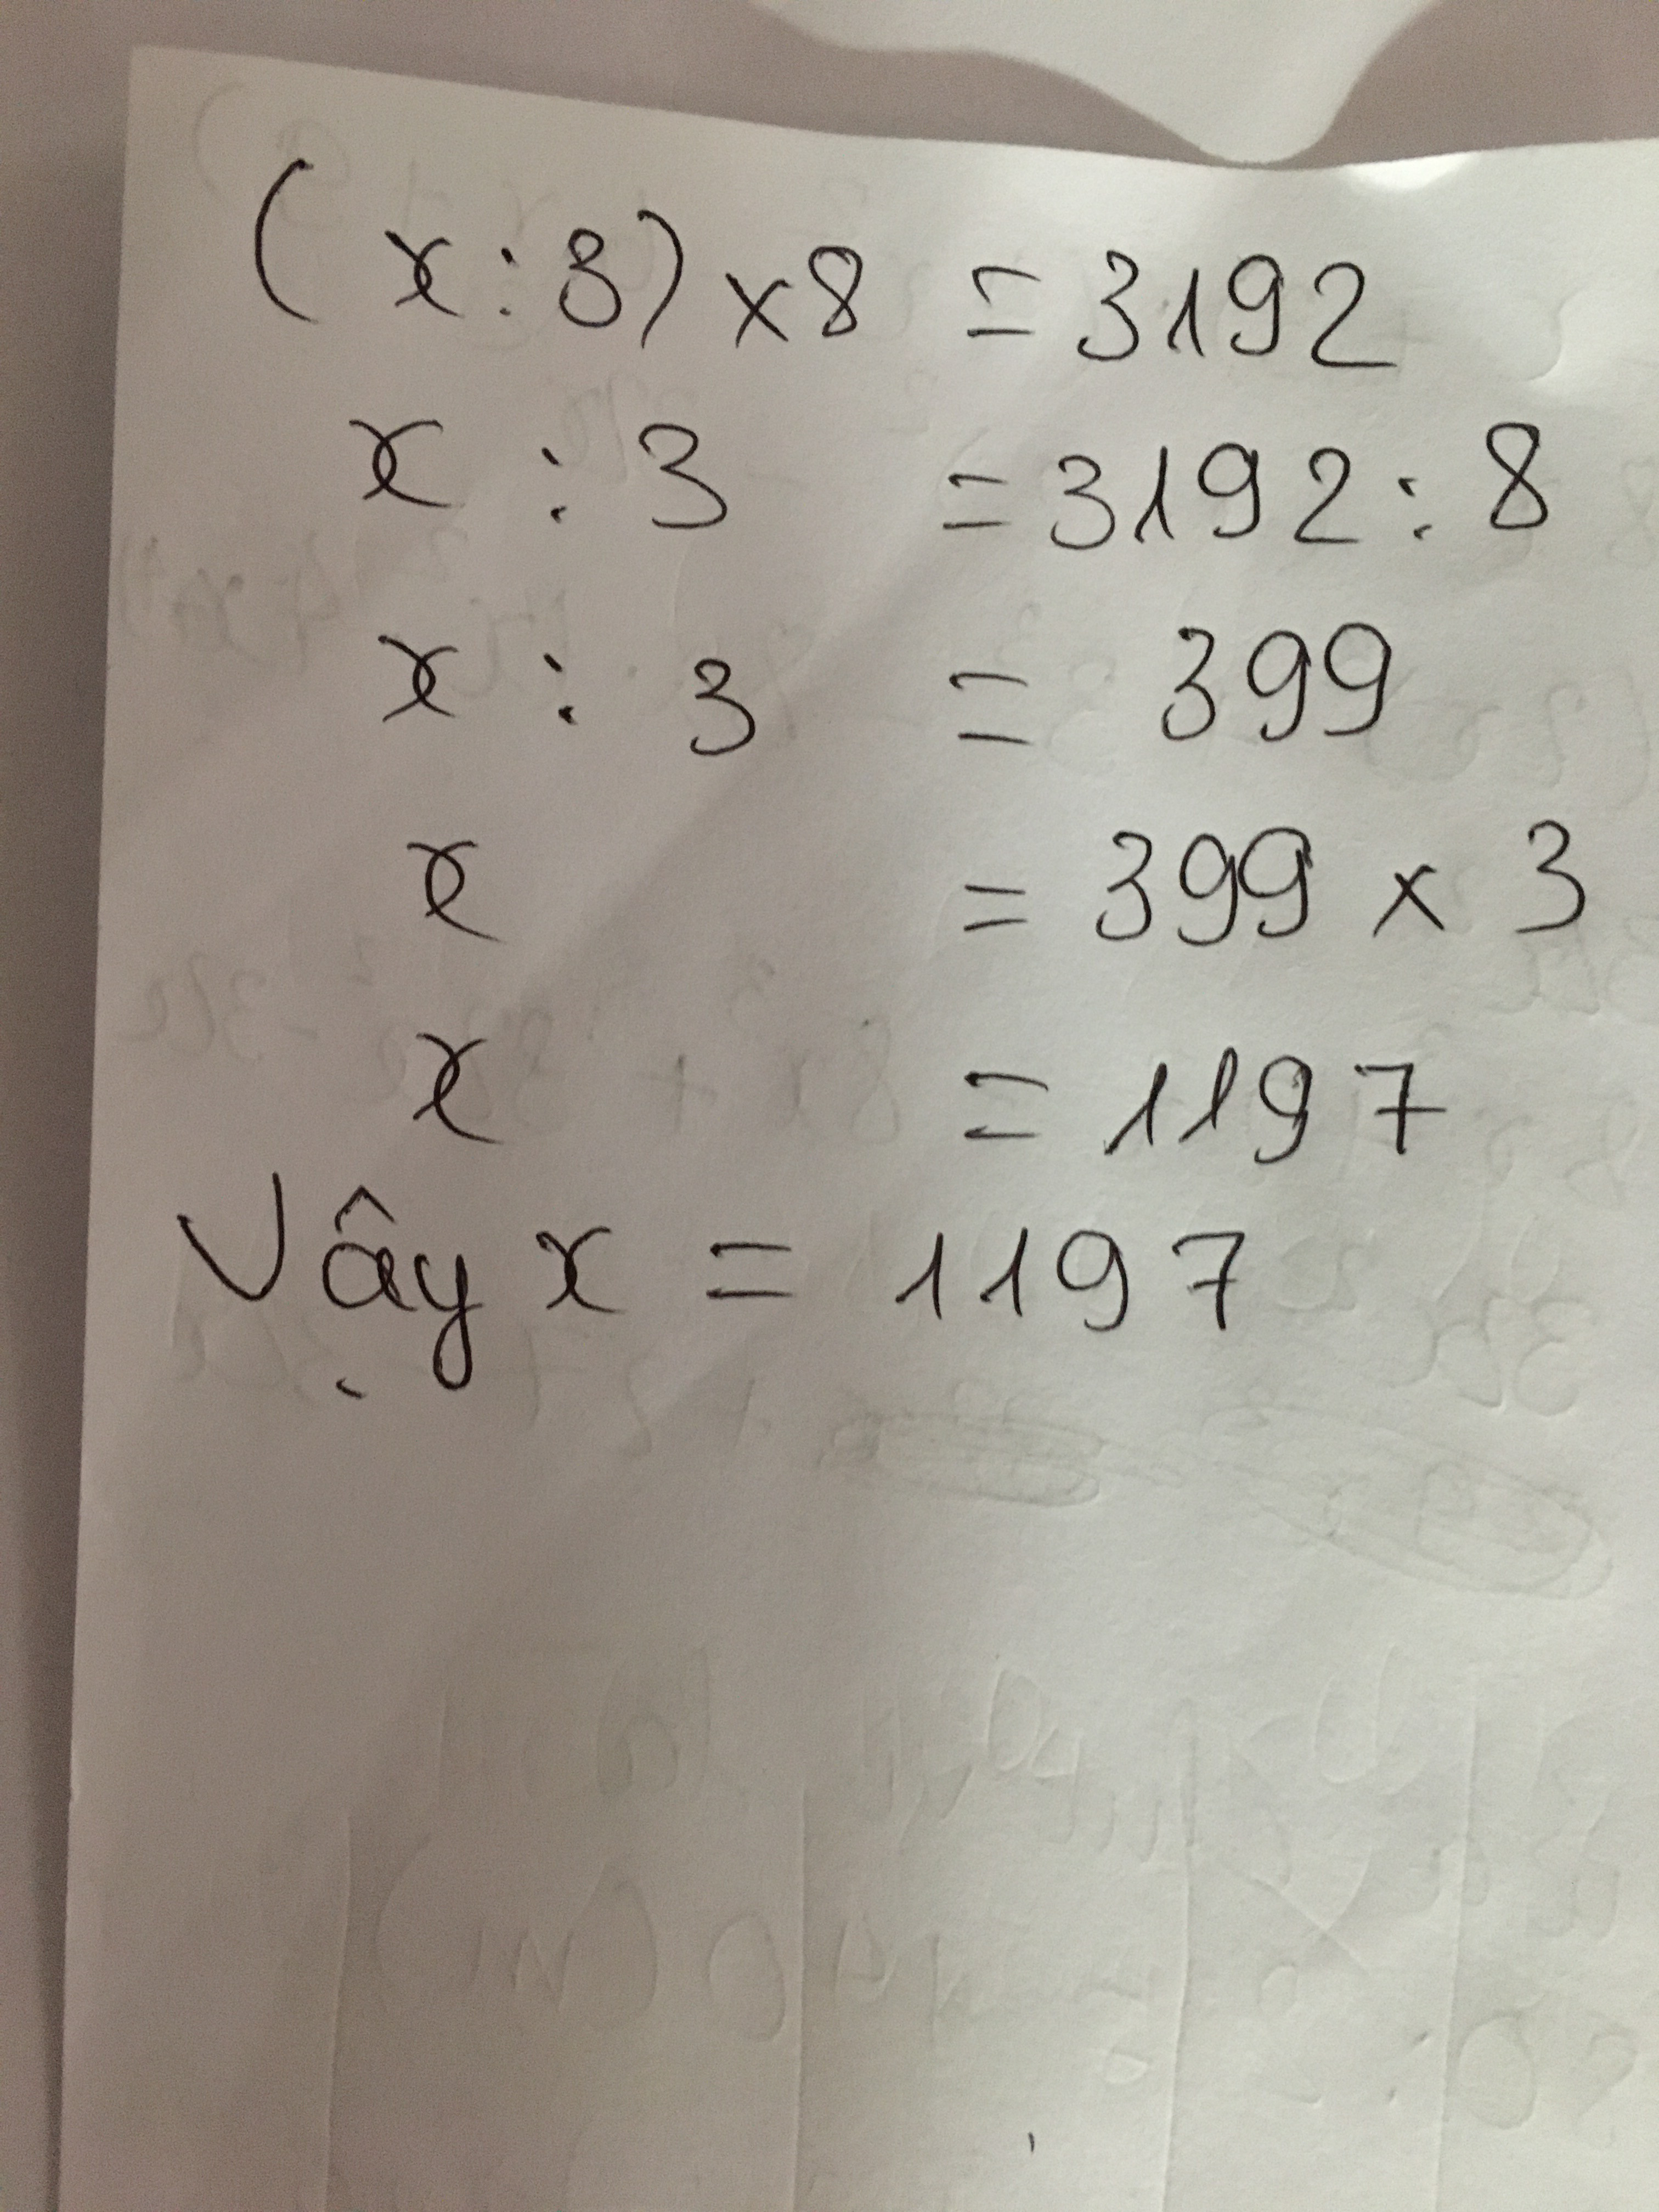 (x : 3) x 8 = 3192
x : 3 = 3192 : 8
x : 3 = 399
x = 399 x 3
x = 1197
Vậy x = 1197